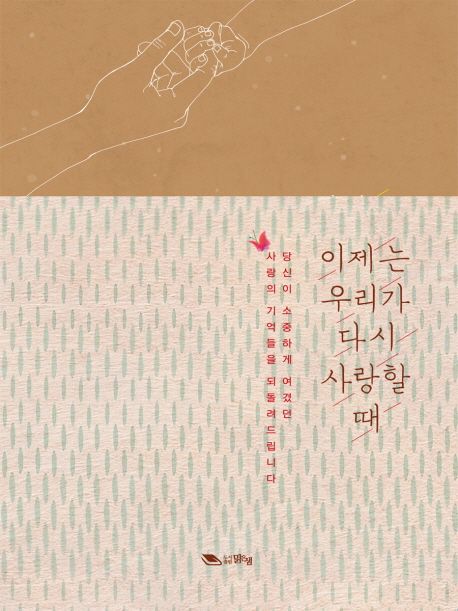 이제는
우리가
다시
사랑할
때
당신이 소중하게 여겼던
사랑의 기억들을 되돌려드립니다
도서출판 맘에샘